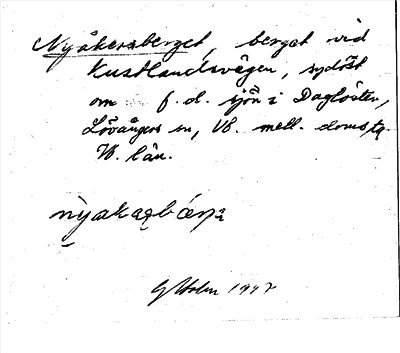 Nyåkersberget, berget vid
Kustlandsvägen, sydöst
om f.d. sjön i Daglösten,
Lövångers sn, Vb. mell. doms,
Vb. län.
1947